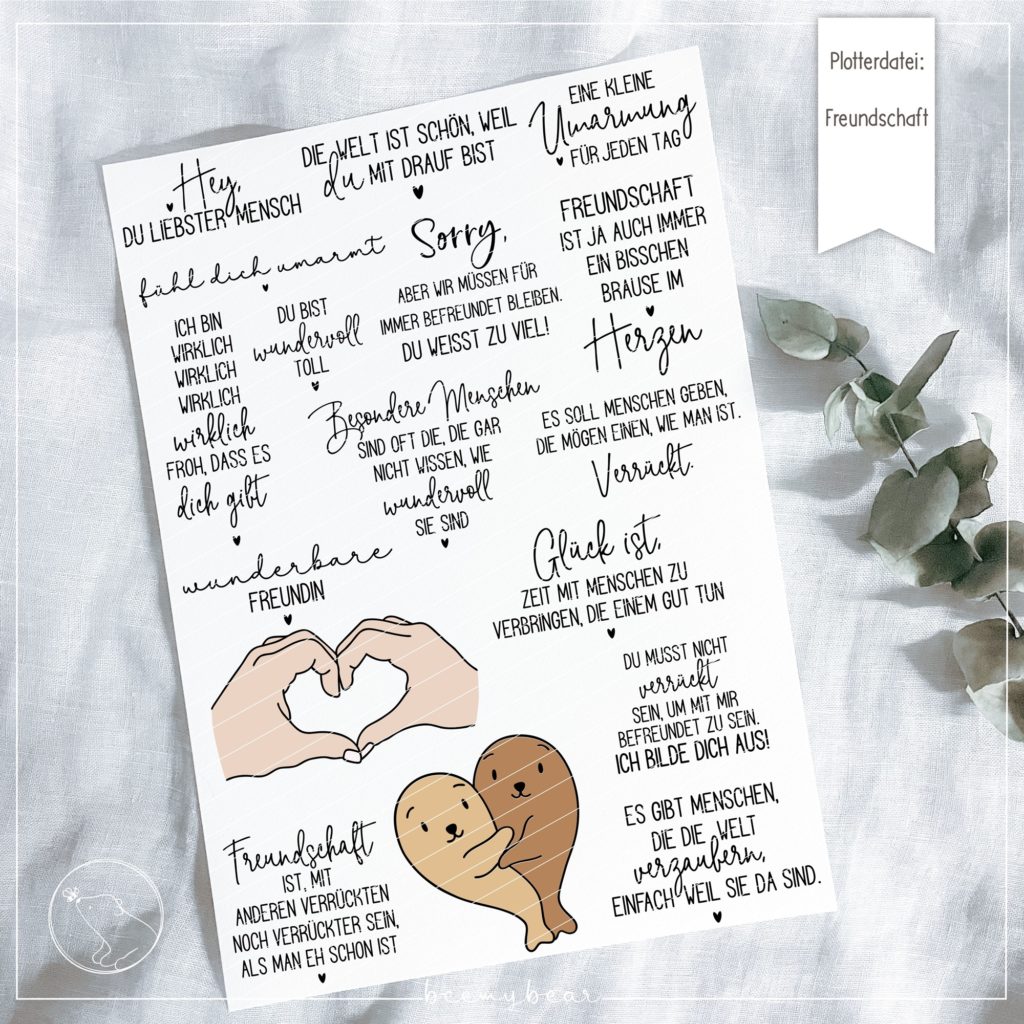 Plotterdatei:
Freundschaft
Hey,
DU LIEBSTER MENSCH
DIE WELT IST SCHÖN, WEIL
du MIT DRAUF BIST
EINE KLEINE
Umarmung
FÜR JEDEN TAG
fühl dich umarmt
Sorry,
ABER WIR MÜSSEN FÜR
IMMER BEFREUNDET BLEIBEN.
DU WEISST ZU VIEL!
FREUNDSCHAFT
IST JA AUCH IMMER
EIN BISSCHEN
BRAUSE IM
Herzen
ICH BIN
WIRKLICH
WIRKLICH
WIRKLICH
wirklich
FROH, DASS ES
dich gibt
DU BIST
wundervoll
TOLL
Besondere Menschen
SIND OFT DIE, DIE GAR
NICHT WISSEN, WIE
wundervoll
SIE SIND
ES SOLL MENSCHEN GEBEN,
DIE MÖGEN EINEN, WIE MAN IST.
Verrückt.
wunderbare
FREUNDIN
Glück ist,
ZEIT MIT MENSCHEN ZU
VERBRINGEN, DIE EINEM GUT TUN
DU MUSST NICHT
verrückt
SEIN, UM MIT MIR
BEFREUNDET ZU SEIN.
ICH BILDE DICH AUS!
Freundschaft
IST, MIT
ANDEREN VERRÜCKTEN
NOCH VERRÜCKTER SEIN,
ALS MAN EH SCHON IST
ES GIBT MENSCHEN,
DIE DIE WELT
verzaubern,
EINFACH WEIL SIE DA SIND.
beemybear